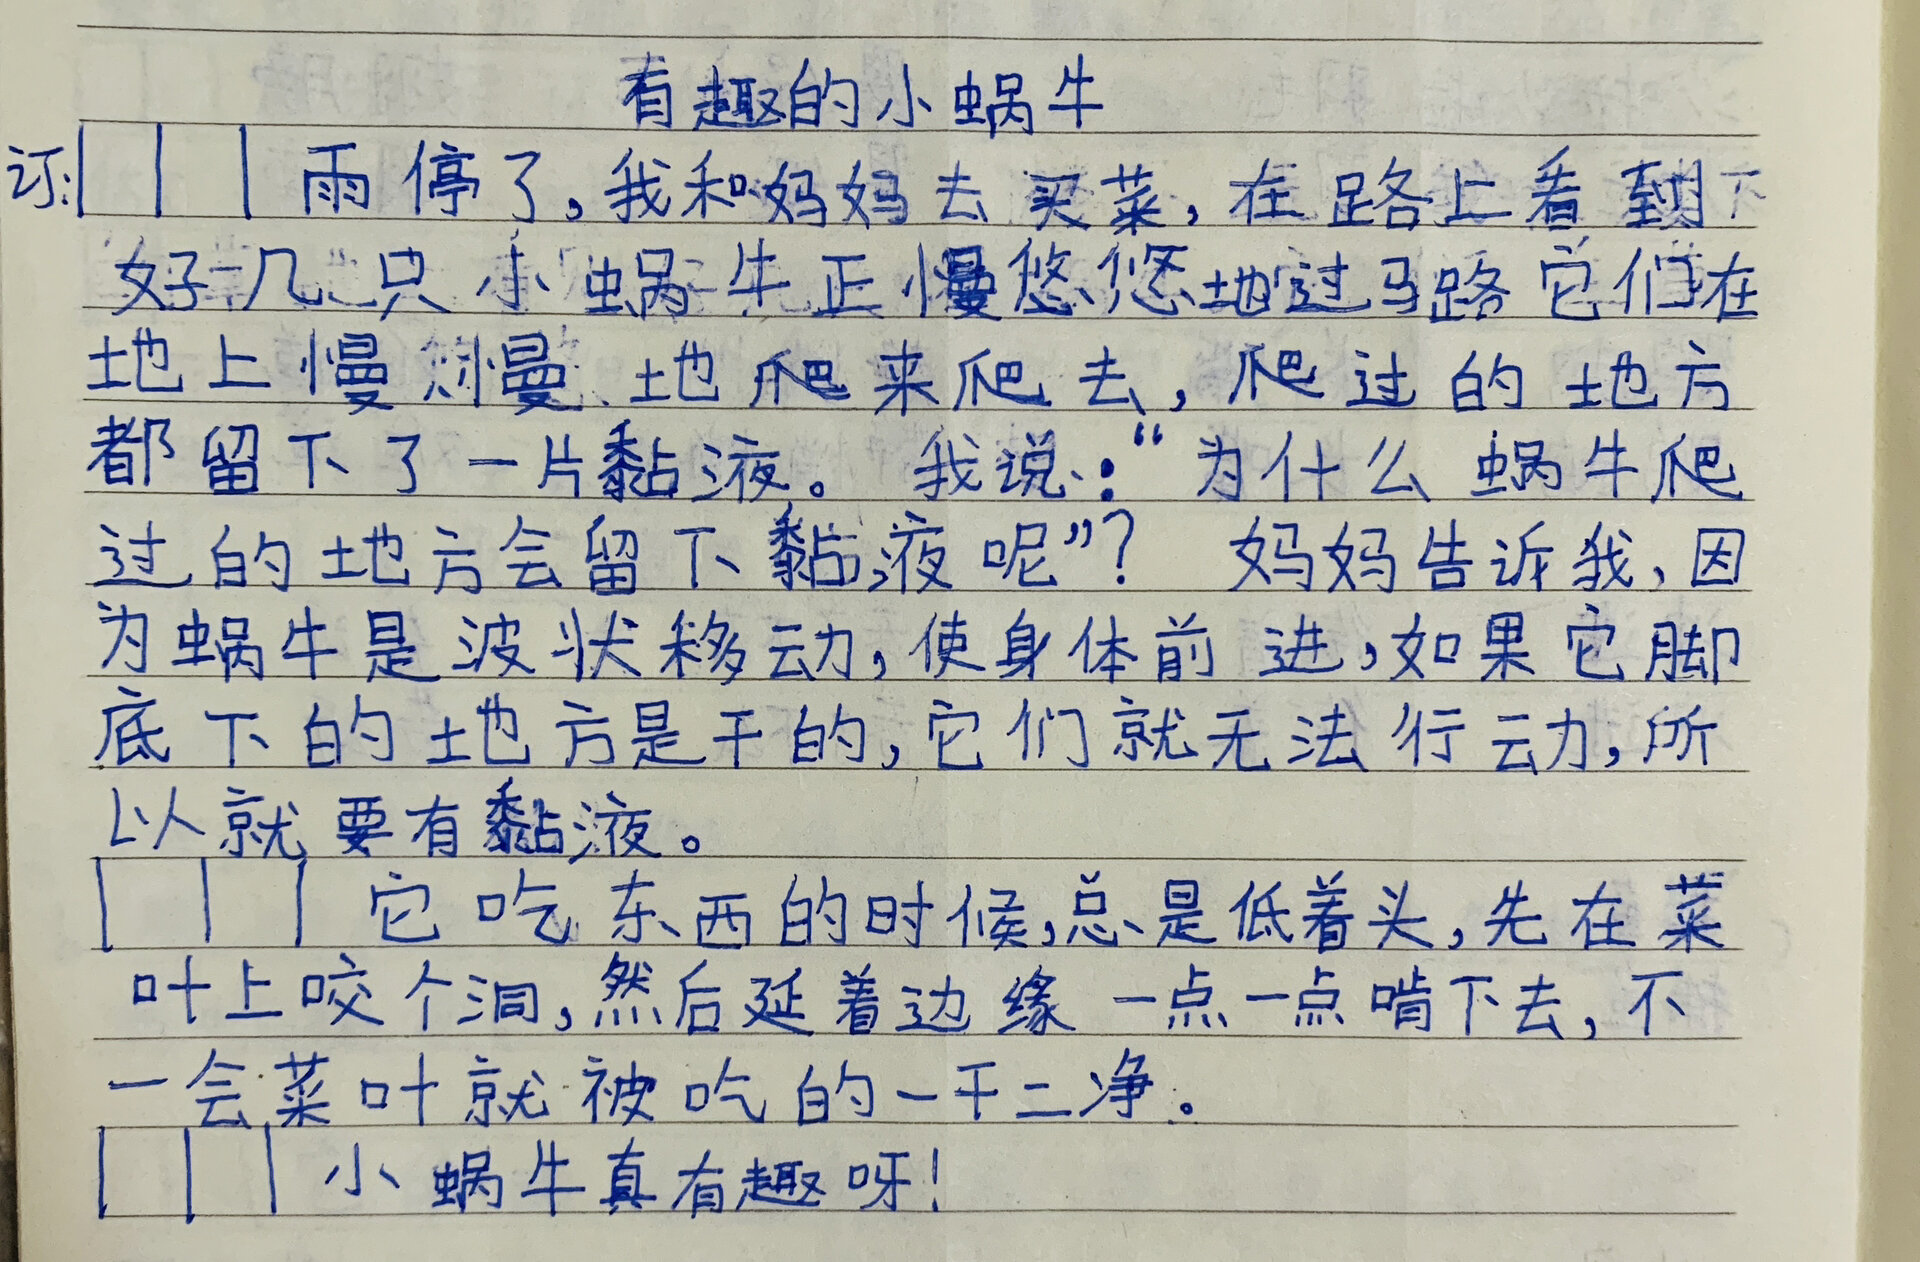 有趣的小蜗牛
订:雨停了,我和妈妈去买菜,在路上看到
好几只小蜗牛正慢悠悠地过马路它们在
地上慢慢地爬来爬去,爬过的地方
都留下了一片黏液。我说:“为什么蜗牛爬
过的地方会留下黏液呢”?妈妈告诉我,因
为蜗牛是波状移动,使身体前进,如果它脚
底下的地方是干的,它们就无法行动,所
以就要有黏液。
它吃东西的时候,总是低着头,先在菜
叶上咬个洞,然后延着边缘一点一点啃下去,不
一会菜叶就被吃的一干二净。
小蜗牛真有趣呀!